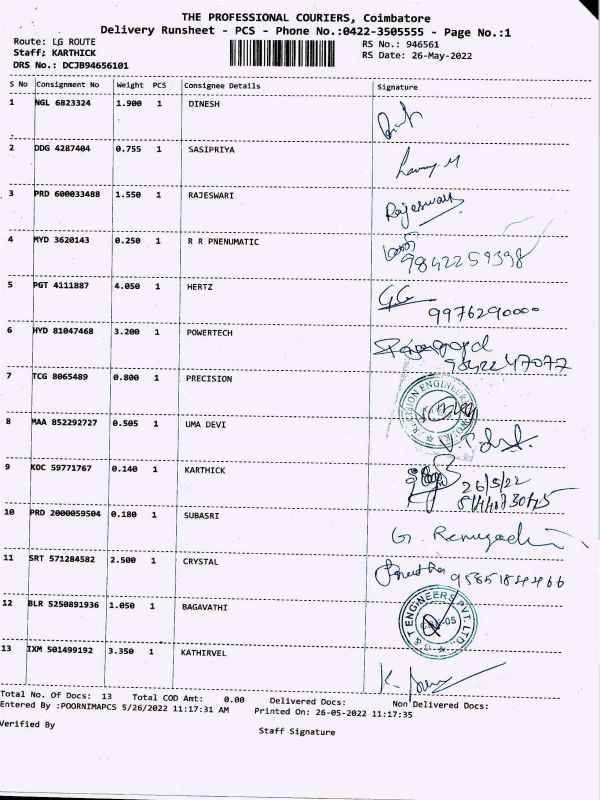 THE PROFESSIONAL COURIERS, Coimbatore
Delivery Runsheet - PCS - Phone No.:0422-3505555 - Page No.:1
Route: LG ROUTE
RS No.: 946561
Staff; KARTHICK
RS Date: 26-May-2022
DRS No.: DCJB94656101
S No Consignment No Weight PCS Consignee Details Signature
1 NGL 6823324 1.900 1 DINESH
2 DDG 4287404 0.755 1 SASIPRIYA
3 PRD 600033488 1.550 1 RAJESWARI Rajeswari
4 MYD 3620143 0.250 1 R R PNENUMATIC
9842259398
5 PGT 4111887 4.050 1 HERTZ GG
9976290000
6 HYD 81047468 3.200 1 POWERTECH
9842247077
7 TCG 8065489 0.800 1 PRECISION
8 MAA 852292727 0.505 1 UMA DEVI
9 KOC 59771767 0.140 1 KARTHICK
26/5/22
10 PRD 2000059504 0.180 1 SUBASRI
11 SRT 571284582 2.500 1 CRYSTAL
9585184466
12 BLR 5250891936 1.050 1 BAGAVATHI
& T ENGINEERS PVT. LTD.
13 IXM 501499192 3.350 1 KATHIRVEL
Total No. Of Docs: 13 Total COD Amt: 0.00 Delivered Docs: Non Delivered Docs:
Entered By :POORNIMAPCS 5/26/2022 11:17:31 AM Printed On: 26-05-2022 11:17:35
Verified By
Staff Signature